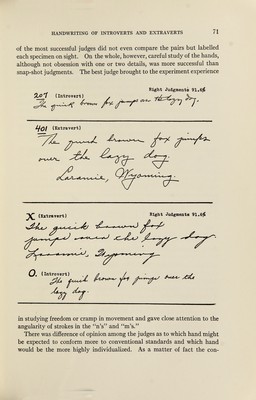 HANDWRITING OF INTROVERTS AND EXTRAVERTS 71
of the most successful judges did not even compare the pairs but labelled
each specimen on sight. On the whole, however, careful study of the hands,
although not obsession with one or two details, was more successful than
snap-shot judgments. The best judge brought to the experiment experience
207 (Introvert) Right Judgments 91.6%
The quick brown fox jumps over the lazy dog.
401 (Extravert)
The quick brown fox jumps
over the lazy dog.
Laramie, Wyoming.
X (Extravert) Right Judgments 91.6%
The quick brown fox
jumps over the lazy dog
Laramie, Wyoming
O. (Introvert)
The quick brown fox jumps over the
lazy dog.
in studying freedom or cramp in movement and gave close attention to the
angularity of strokes in the "n's" and "m's."
There was difference of opinion among the judges as to which hand might
be expected to conform more to conventional standards and which hand
would be the more highly individualized. As a matter of fact the con-